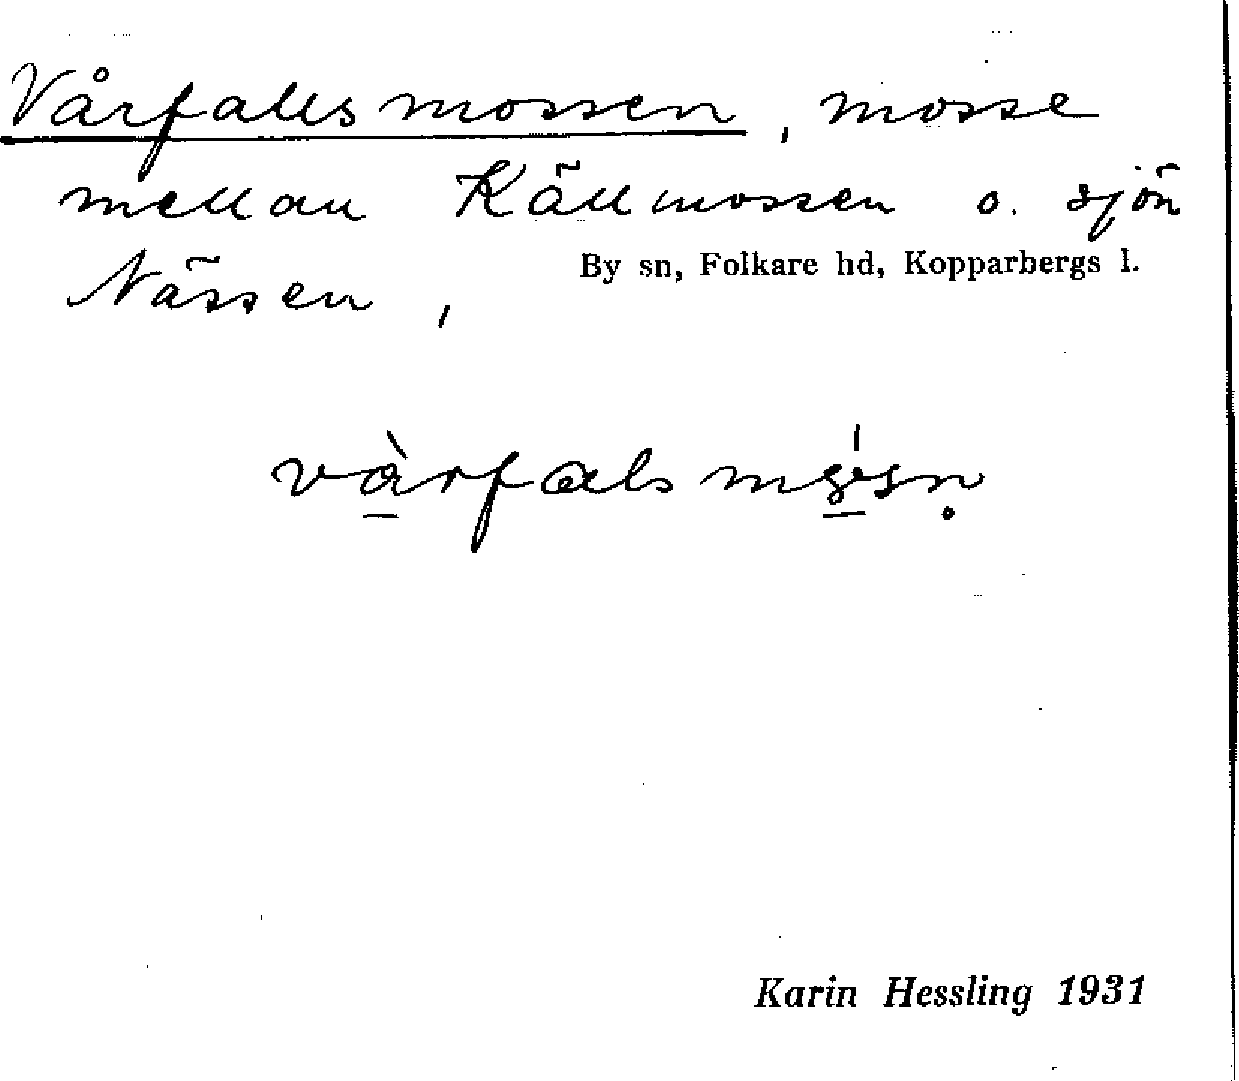 Vårfallsmossen, mosse
mellan Källmossen o. sjön
Nässen,
By sn, Folkare hd, Kopparbergs l.
Karin Hessling 1931